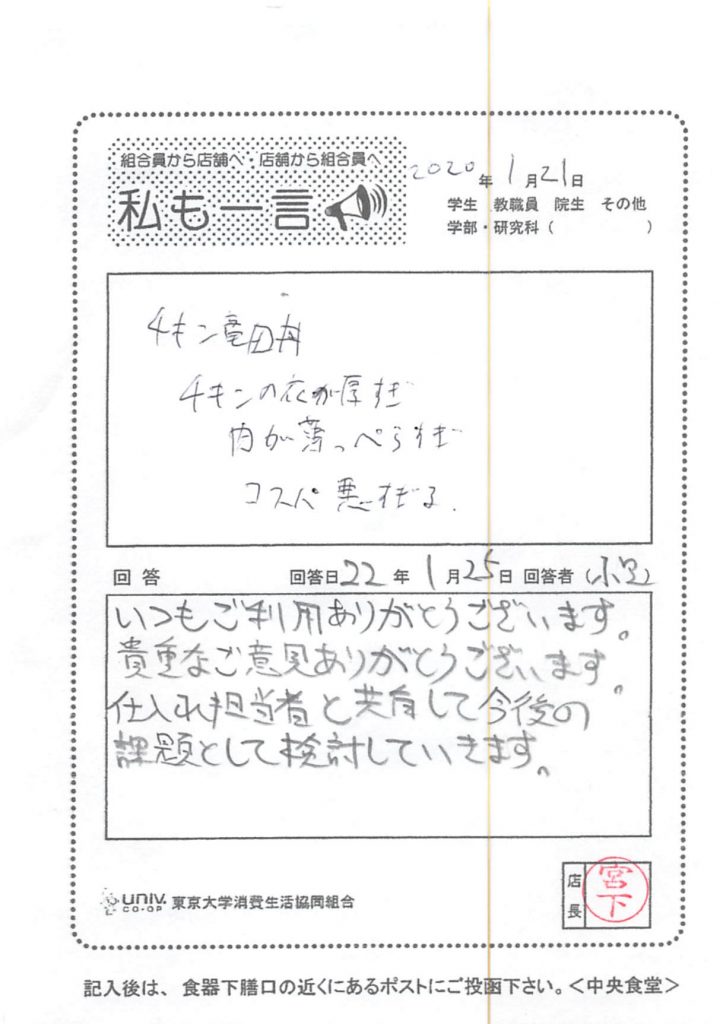 組合員から店舗へ・店舗から組合員へ
私も一言
2020年1月21日
学生 教職員 院生 その他
学部・研究科( )
チキン竜田丼
チキンの衣が厚すぎ
肉が薄っぺらすぎ
コスパ悪すぎる.
回答 回答日22年1月25日 回答者()
いつもご利用ありがとうございます。
貴重なご意見ありがとうございます。
仕入れ担当者と共有して今後の
課題として検討していきます。
univ. CO-OP 東京大学消費生活協同組合
店長 宮下
記入後は、食器下膳口の近くにあるポストにご投函下さい。<中央食堂>